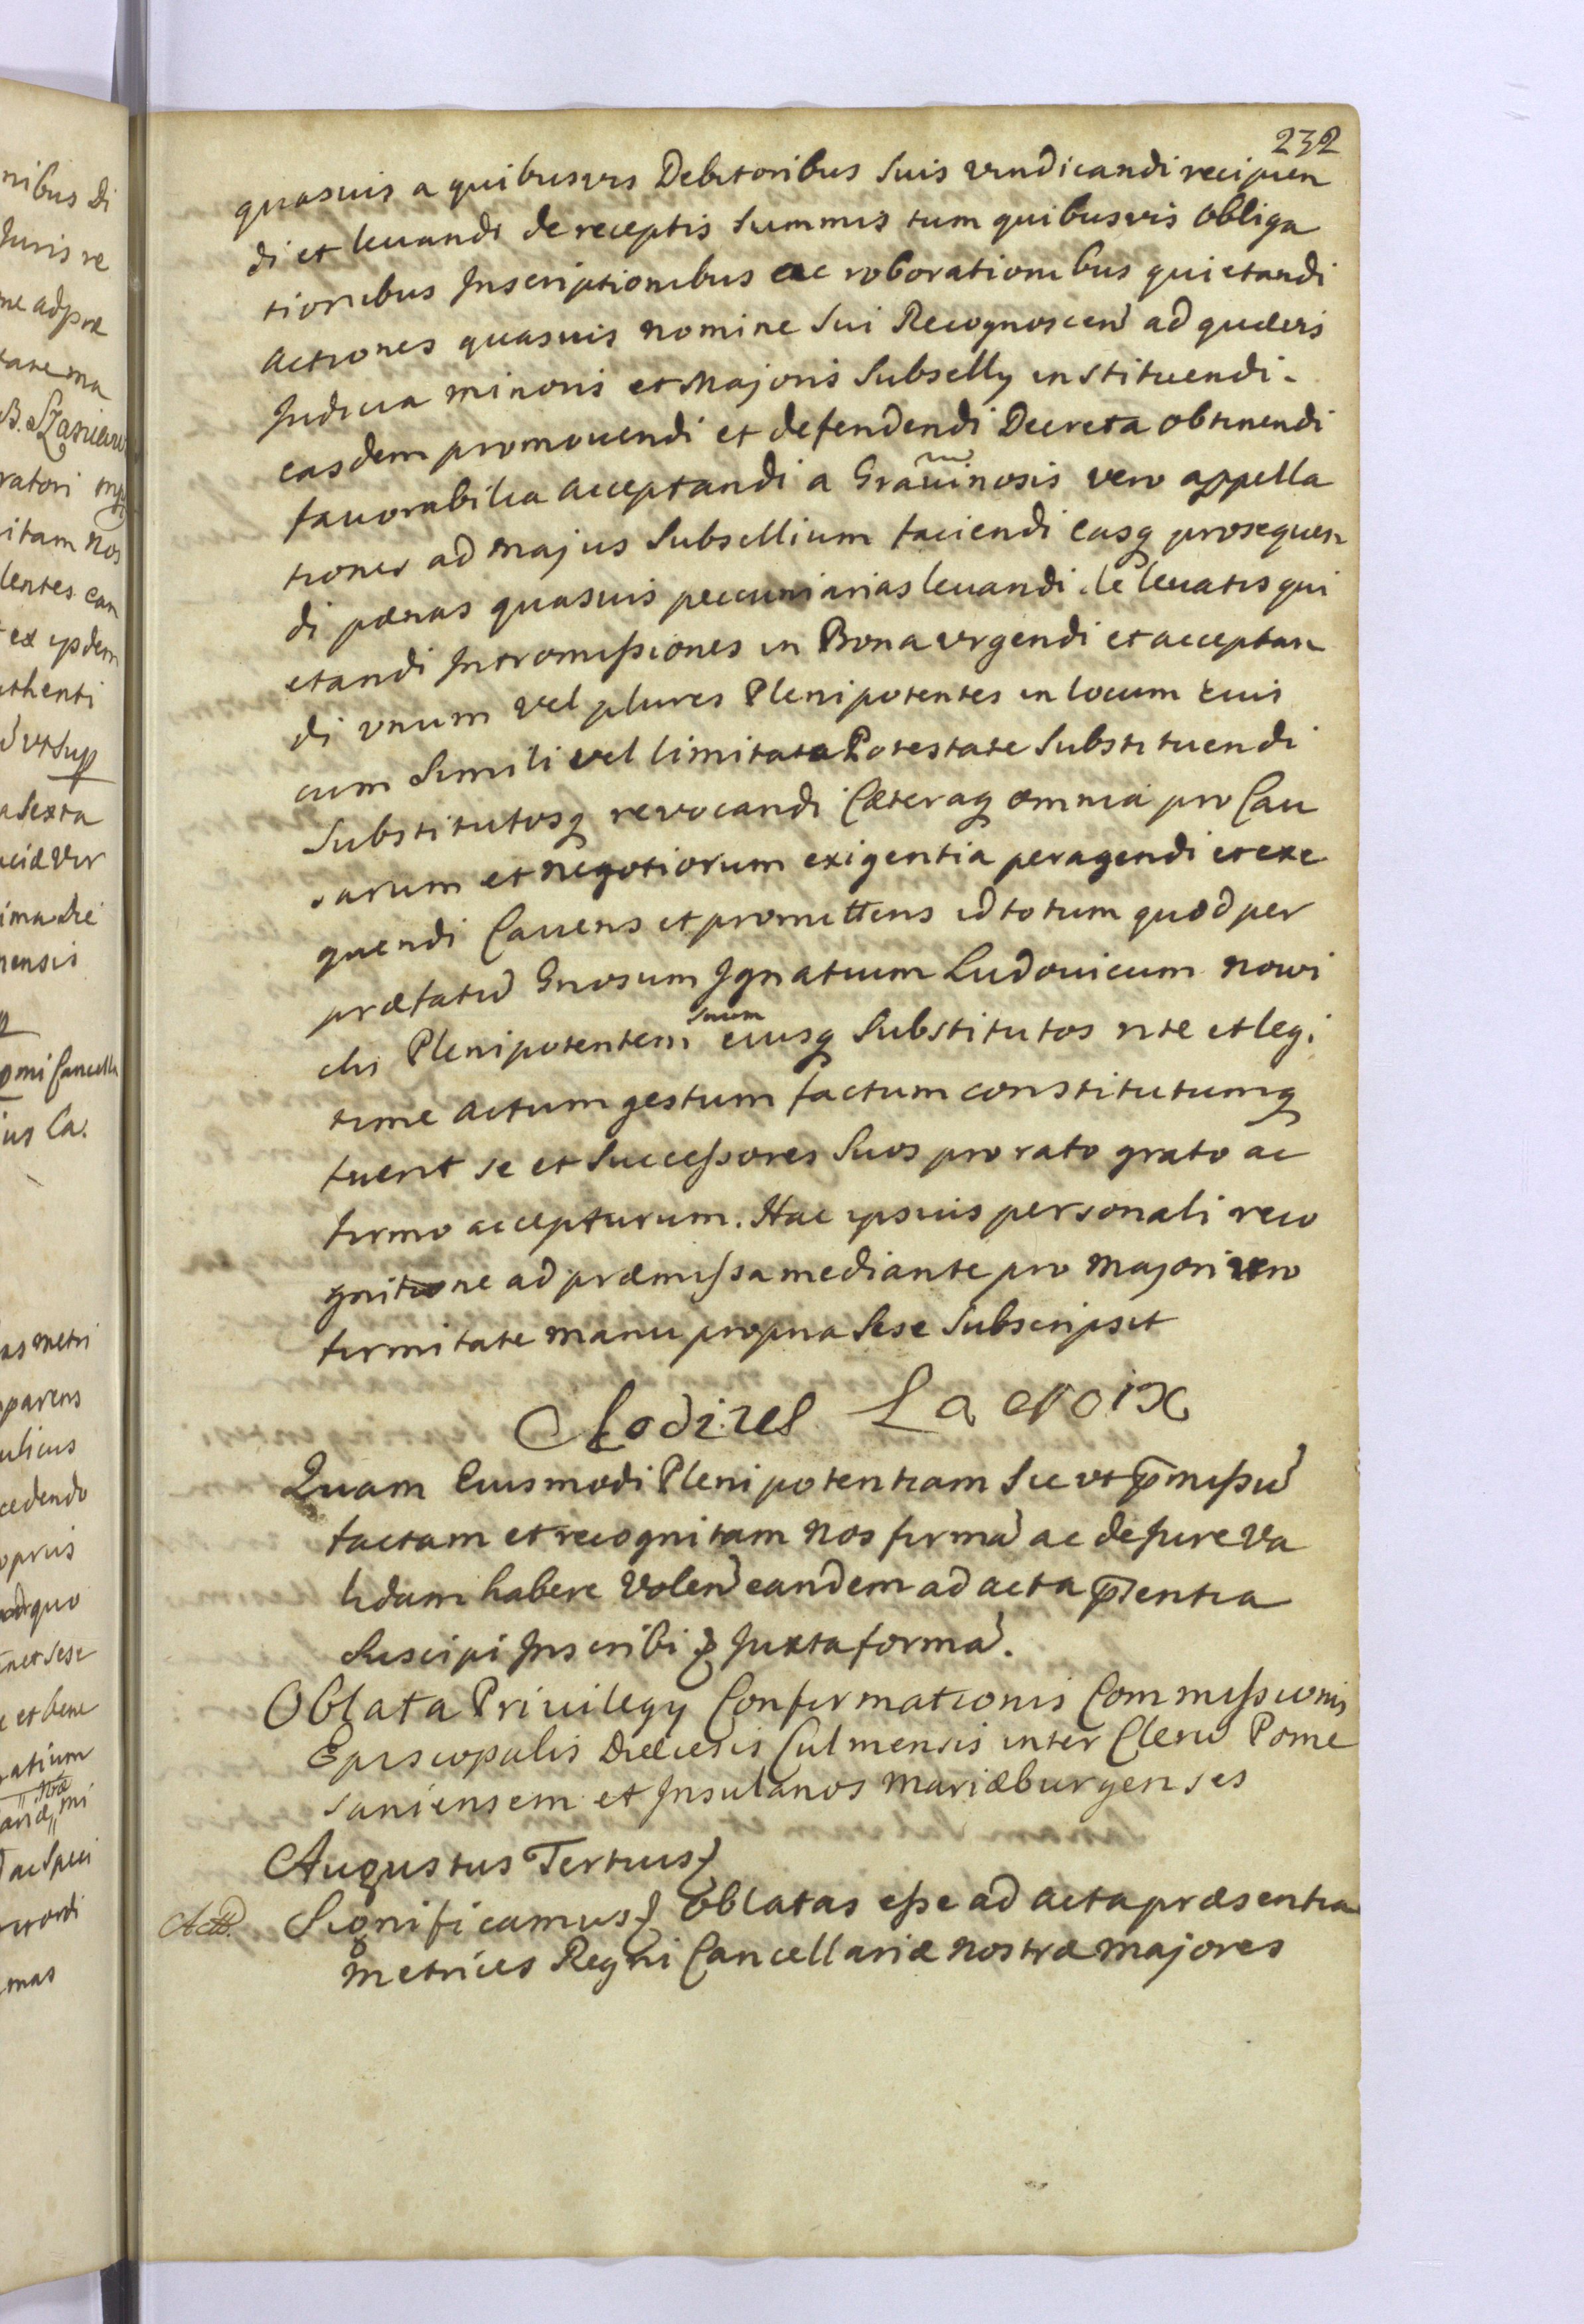 232
quasuis a quibusvis Debitoribus Suis vindicandi recipien
di et levandi de receptis Summis tum quibusvis obliga
tionibus Inscriptionibus ac roborationibus quietandi
actiones quasuis nomine Sui Recognoscen̄ ad quaevis
Judicia minoris et Majoris Subselly instituendi.
easdem promovendi et defendendi Decreta obtinendi
favorabilia acceptandi a Gravinosis vero appella
tiones ad majus Subsellium faciendi easq́ prosequen
di pænas quasuis pecuniarias levandi de levatis qui
etandi Intromissiones in Bona urgendi et acceptan
di vnum vel plures Plenipotentes in locum Sui
cum Simili vel limitata Potestate Substituendi
Substitutosq́ revocandi Cæteraq́ omnia pro Cau
sarum et negotiorum exigentia peragendi et exe
quendi Cavens et promittens id totum quod per
præfatū Gnosum Ignatium Ludovicum Nowi
cki Plenipotentem Suum eiusq́ Substitutos rite et legi
time actum gestum factum constitutumq́
fuerit se et Successores Suos pro rato grato ac
firmo accepturum. Hac ipsius personali reco
gnitione ad præmissa mediante pro majori vero
firmitate manu propria Sese Subscripsit
La croix
Quam Eiusmodi Plenipotentiam Sic vt p̄missū
factam et recognitam nos firmā ac de Jure va
lidam habere volen̄ eandem ad acta p̄sentia
Suscipi Inscribi & Juxta formā.
Oblata Privilegy Confirmationis Commissionis
Episcopalis Diœcesis Culmensis inter Clerū Pome
saniensem et Insulanos Mariæburgenses
Augustus Tertius &
Significamus & Oblatas esse ad acta præsentia
Metrices Regni Cancellariæ nostræ majores